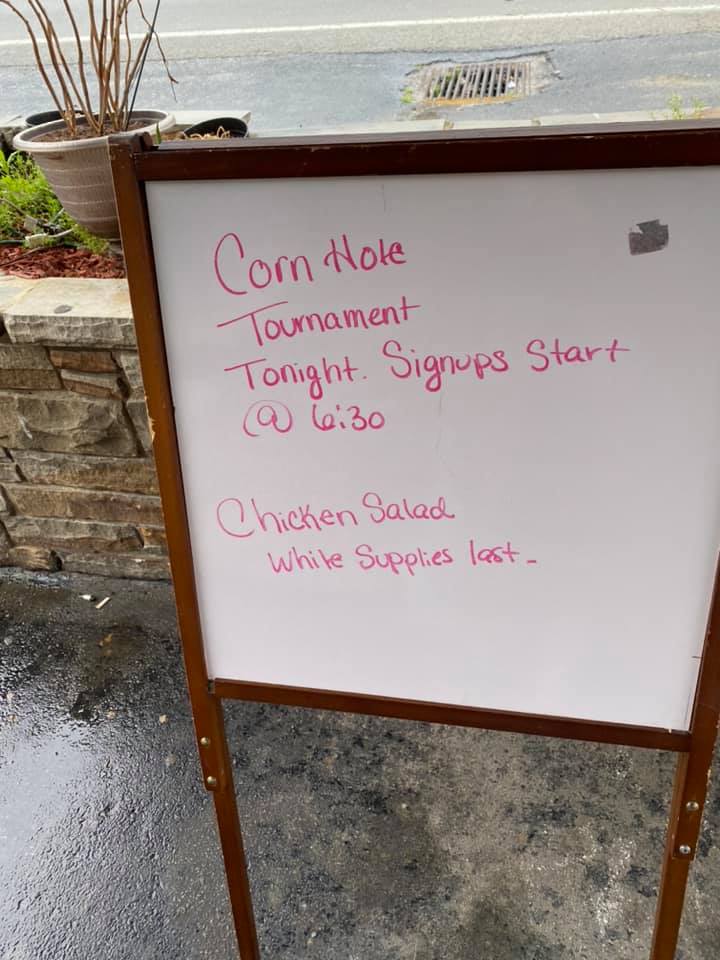 Corn Hole
Tournament
Tonight. Signups Start
@ 6:30
Chicken Salad
While Supplies last-